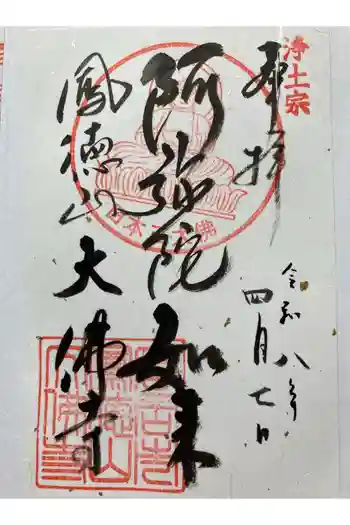 浄土宗
奉拝
令和八年
四月七日
阿弥陀如来
鳳徳山
大佛寺
日本三大佛